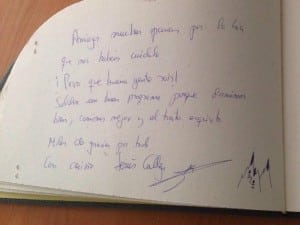 Amigos muchas gracias por lo bien
que nos habéis cuidado
¡Pero que buena gente sois!
Saldrá un buen programa porque dormimos
bien, comimos mejor y el trato exquisito
Miles de gracias por todo
Con cariño Jesús Calleja